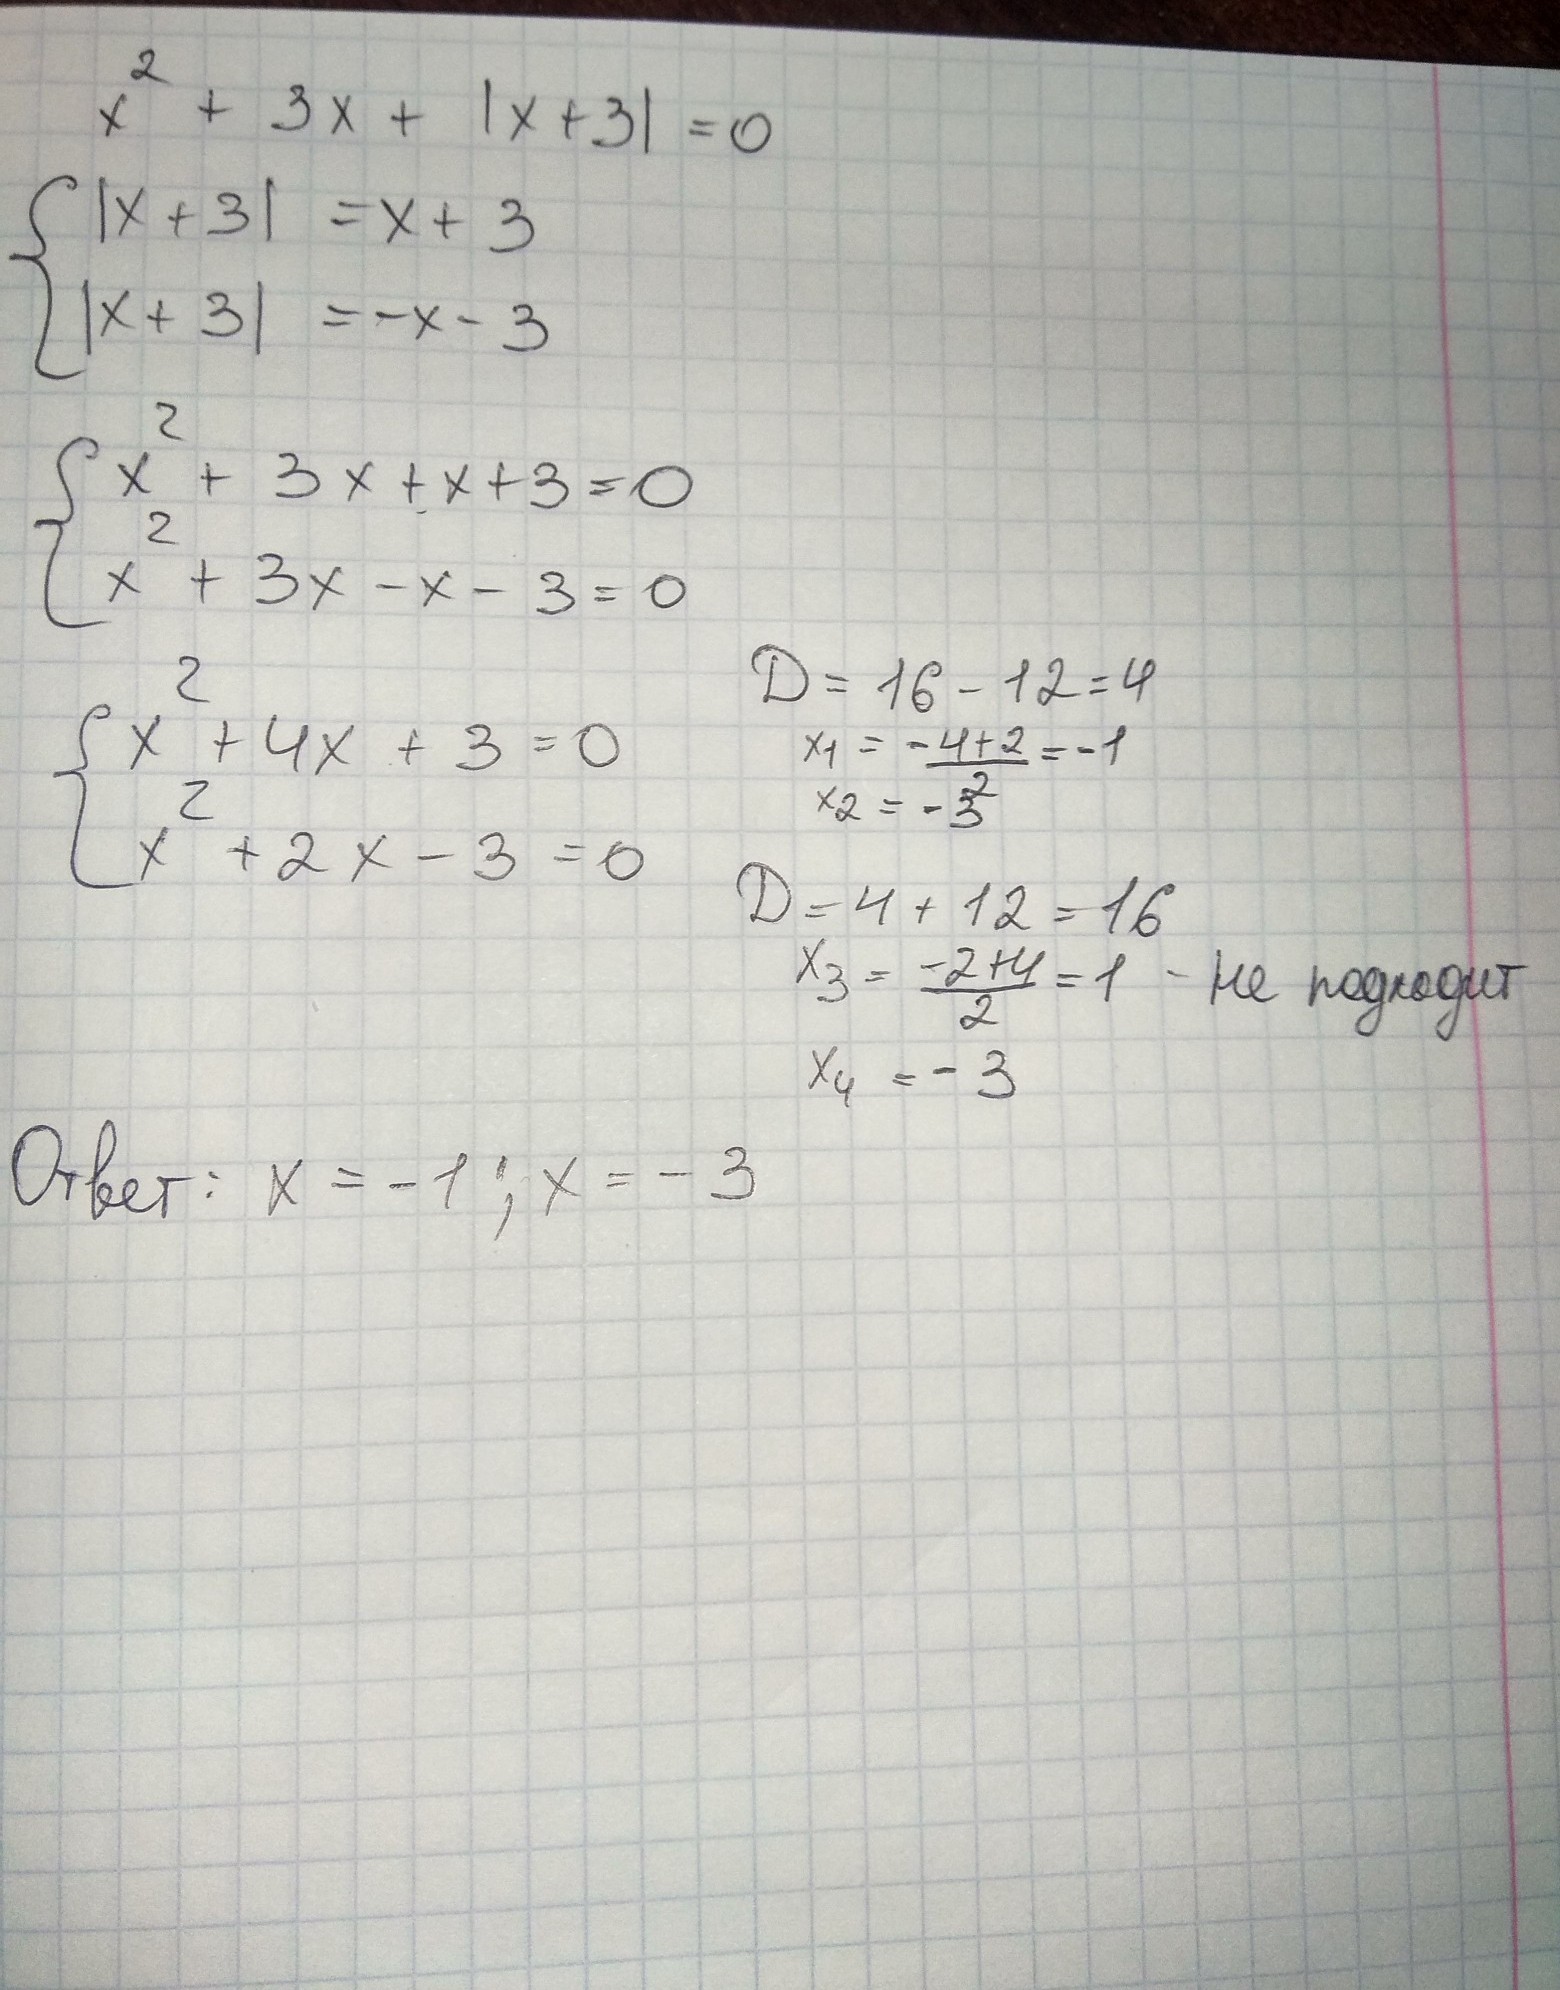 x² + 3x + |x+3| = 0
{ |x+3| = x+3
|x+3| = -x-3
{ x² + 3x + x + 3 = 0
x² + 3x - x - 3 = 0
{ x² + 4x + 3 = 0
x² + 2x - 3 = 0
D = 16 - 12 = 4
x1 = -4+2/2 = -1
x2 = -3
D = 4 + 12 = 16
x3 = -2+4/2 = 1 - не подходит
x4 = -3
Ответ: x = -1; x = -3